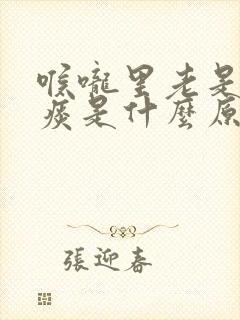 喉嚨里老是
痰是什麼原
張迎春